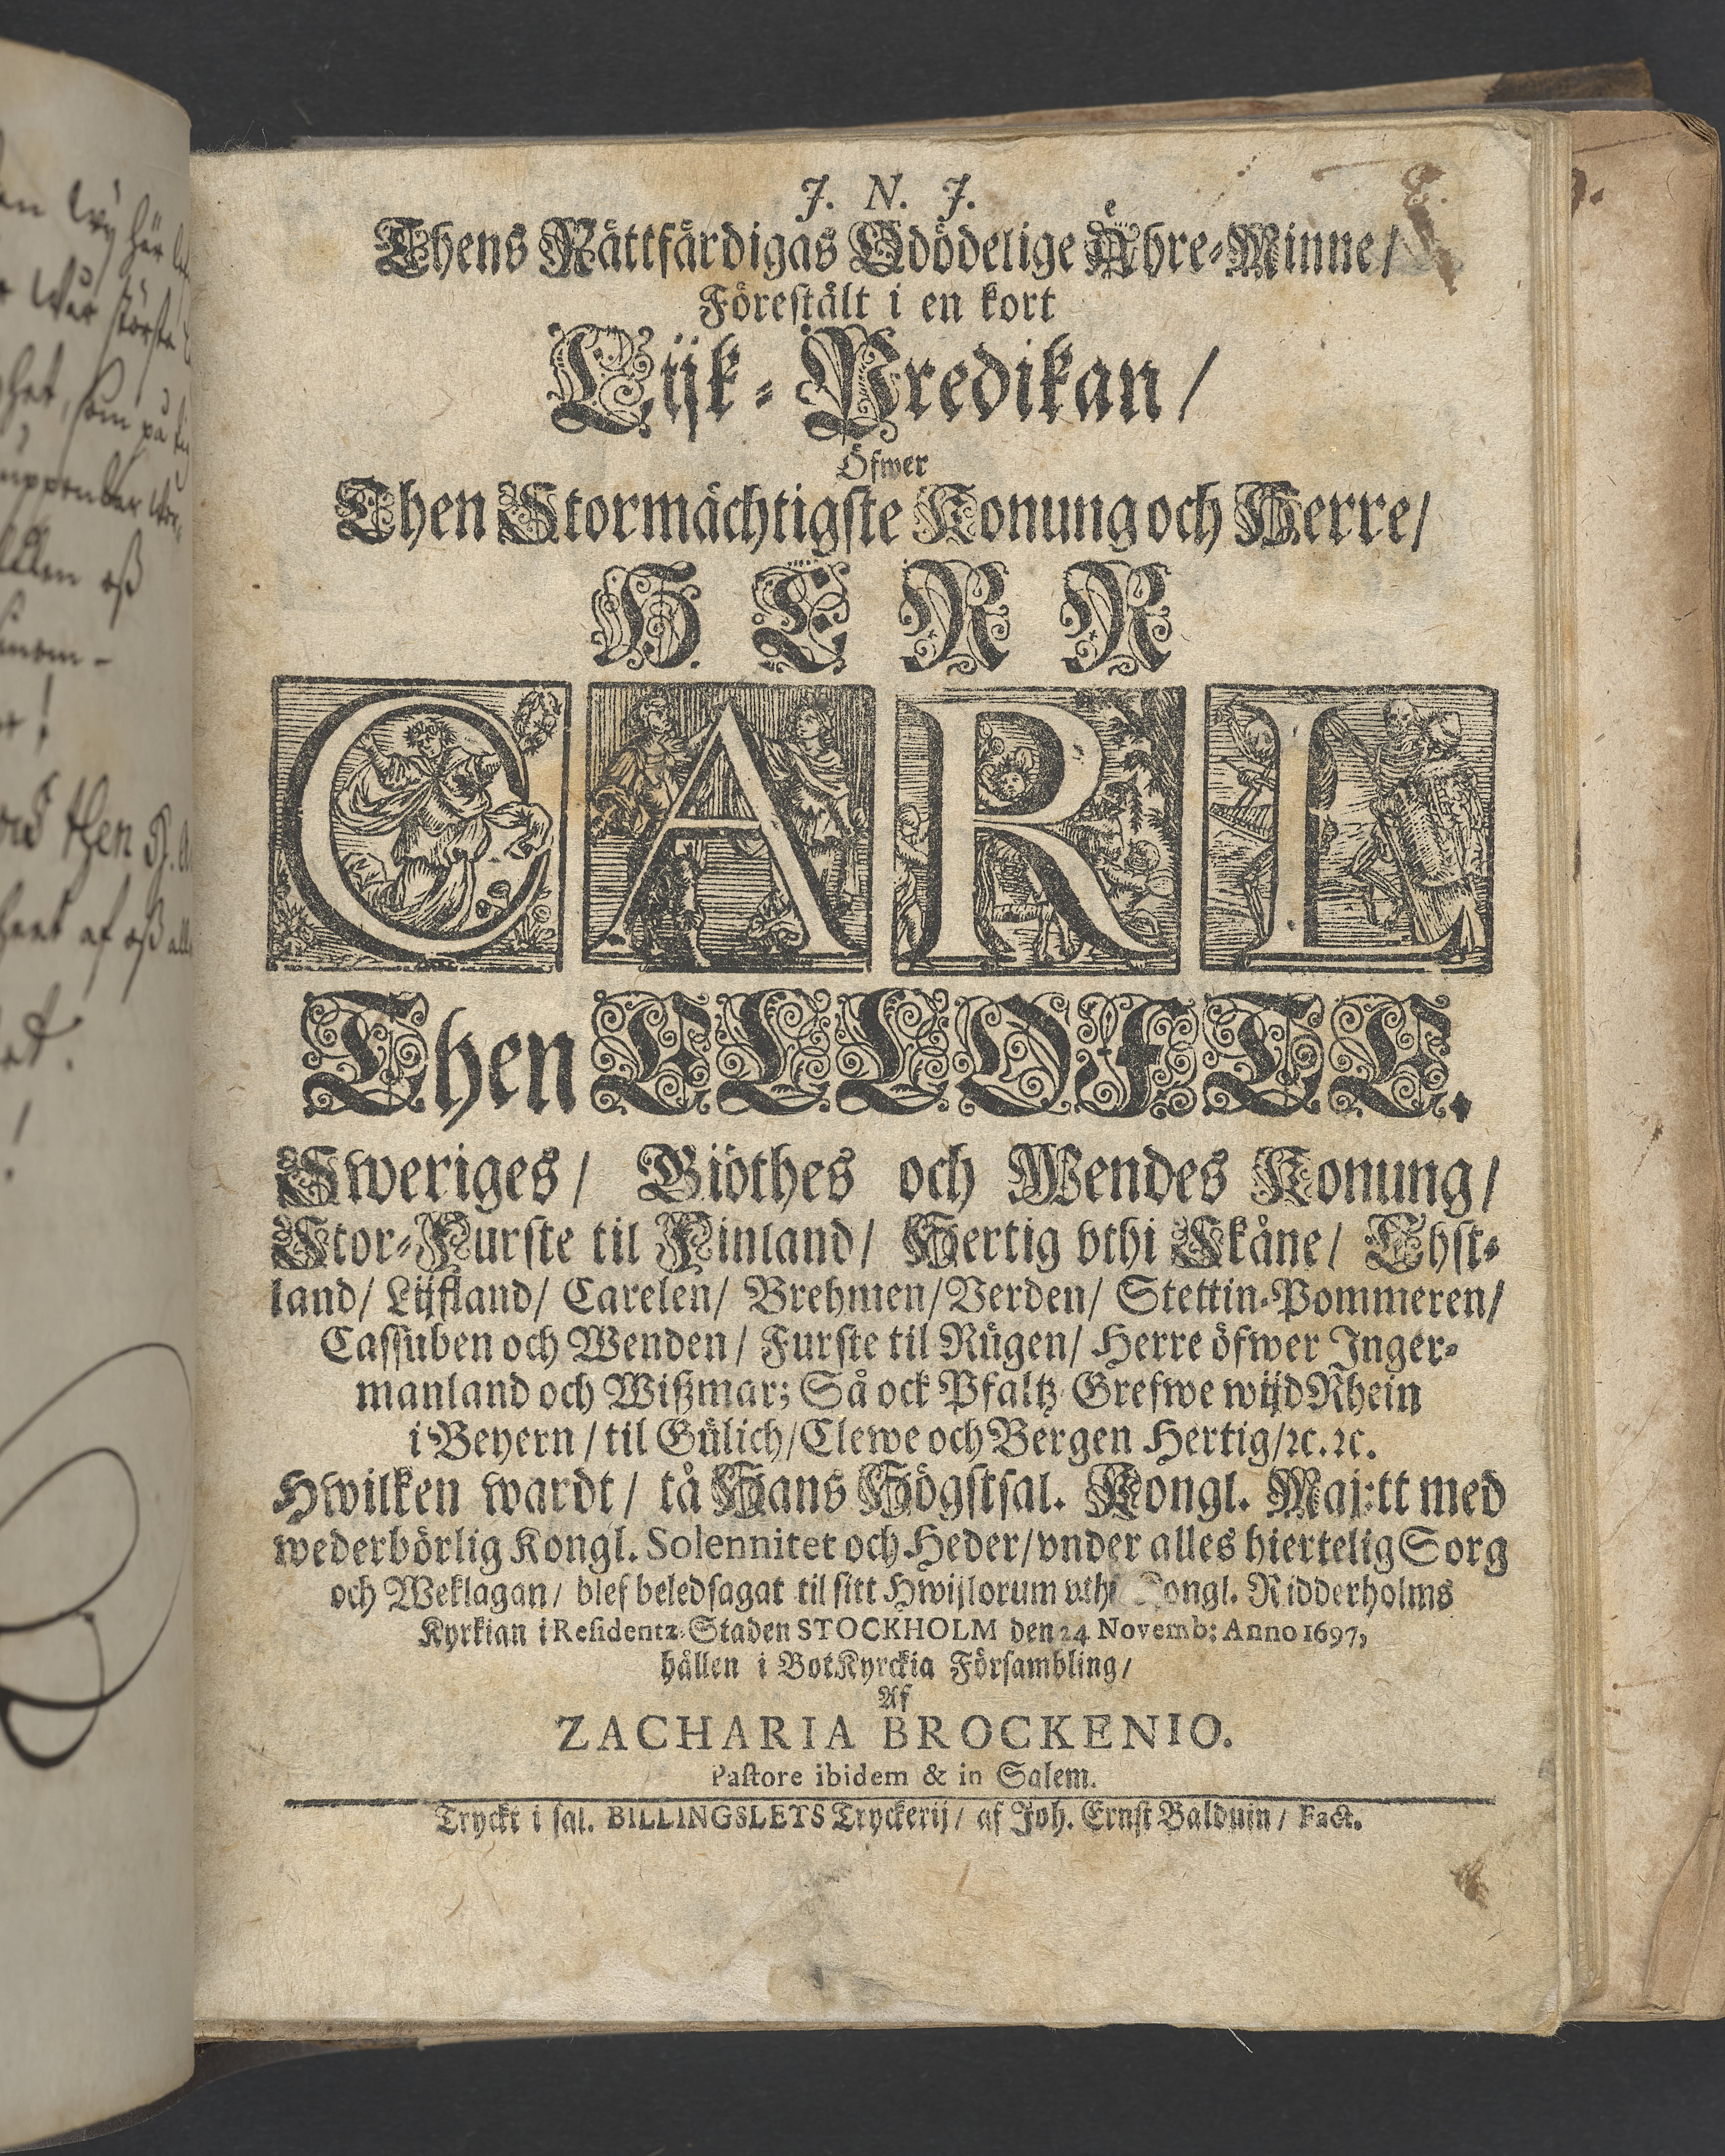 J. N. J.
Thens Rättfärdigas Odödelige Åhre-Minne/
Förestält i en kort
Lijk-Predikan/
Öfwer
Then Stormächtigste Konung och Herre/
HERR
CARL
Then ELLOfTE.
Sweriges/ Giöthes och Wendes Konung/
Stor-Furste til Finland/ Hertig vthi Skåne/ Ehst-
land/ Lijfland/ Carelen/ Brehmen/ Verden/ Stettin-Pommeren/
Cassuben och Wenden/ Furste til Rügen/ Herre öfwer Inger-
manland och Wißmar; Så ock Pfaltz Grefwe wijd Rhein
i Beyern/ til Gülich/ Clewe och Bergen Hertig/ ꝛc. ꝛc.
Hwilken wardt/ tå Hans Högstsal. Kongl. Maj:tt med
wederbörlig Kongl. Solennitet och Heder/ vnder alles hiertelig Sorg
och Weklagan/ blef beledsagat til sitt Hwijlorum vthi Kongl. Ridderholms
Kyrkian i Residentz-Staden STOCKHOLM den 24 Novemb: Anno 1697,
hållen i BotKyrckia Försambling/
Af
ZACHARIA BROCKENIO.
Pastore ibidem & in Salem.
Tryckt i sal. BILLINGSLEYS Tryckerij/ af Joh. Ernst Balduin/ Fact.